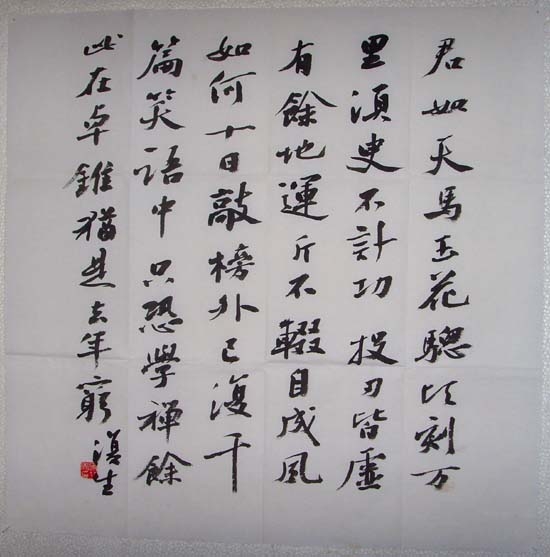 君如天馬玉花驄頃刻万
里須臾不計功投刃皆虛
有餘地運斤不輟自成風
如何十日敲榜外已復千
篇笑語中只恐學禪餘
此在卓錐猶是去年窮
生